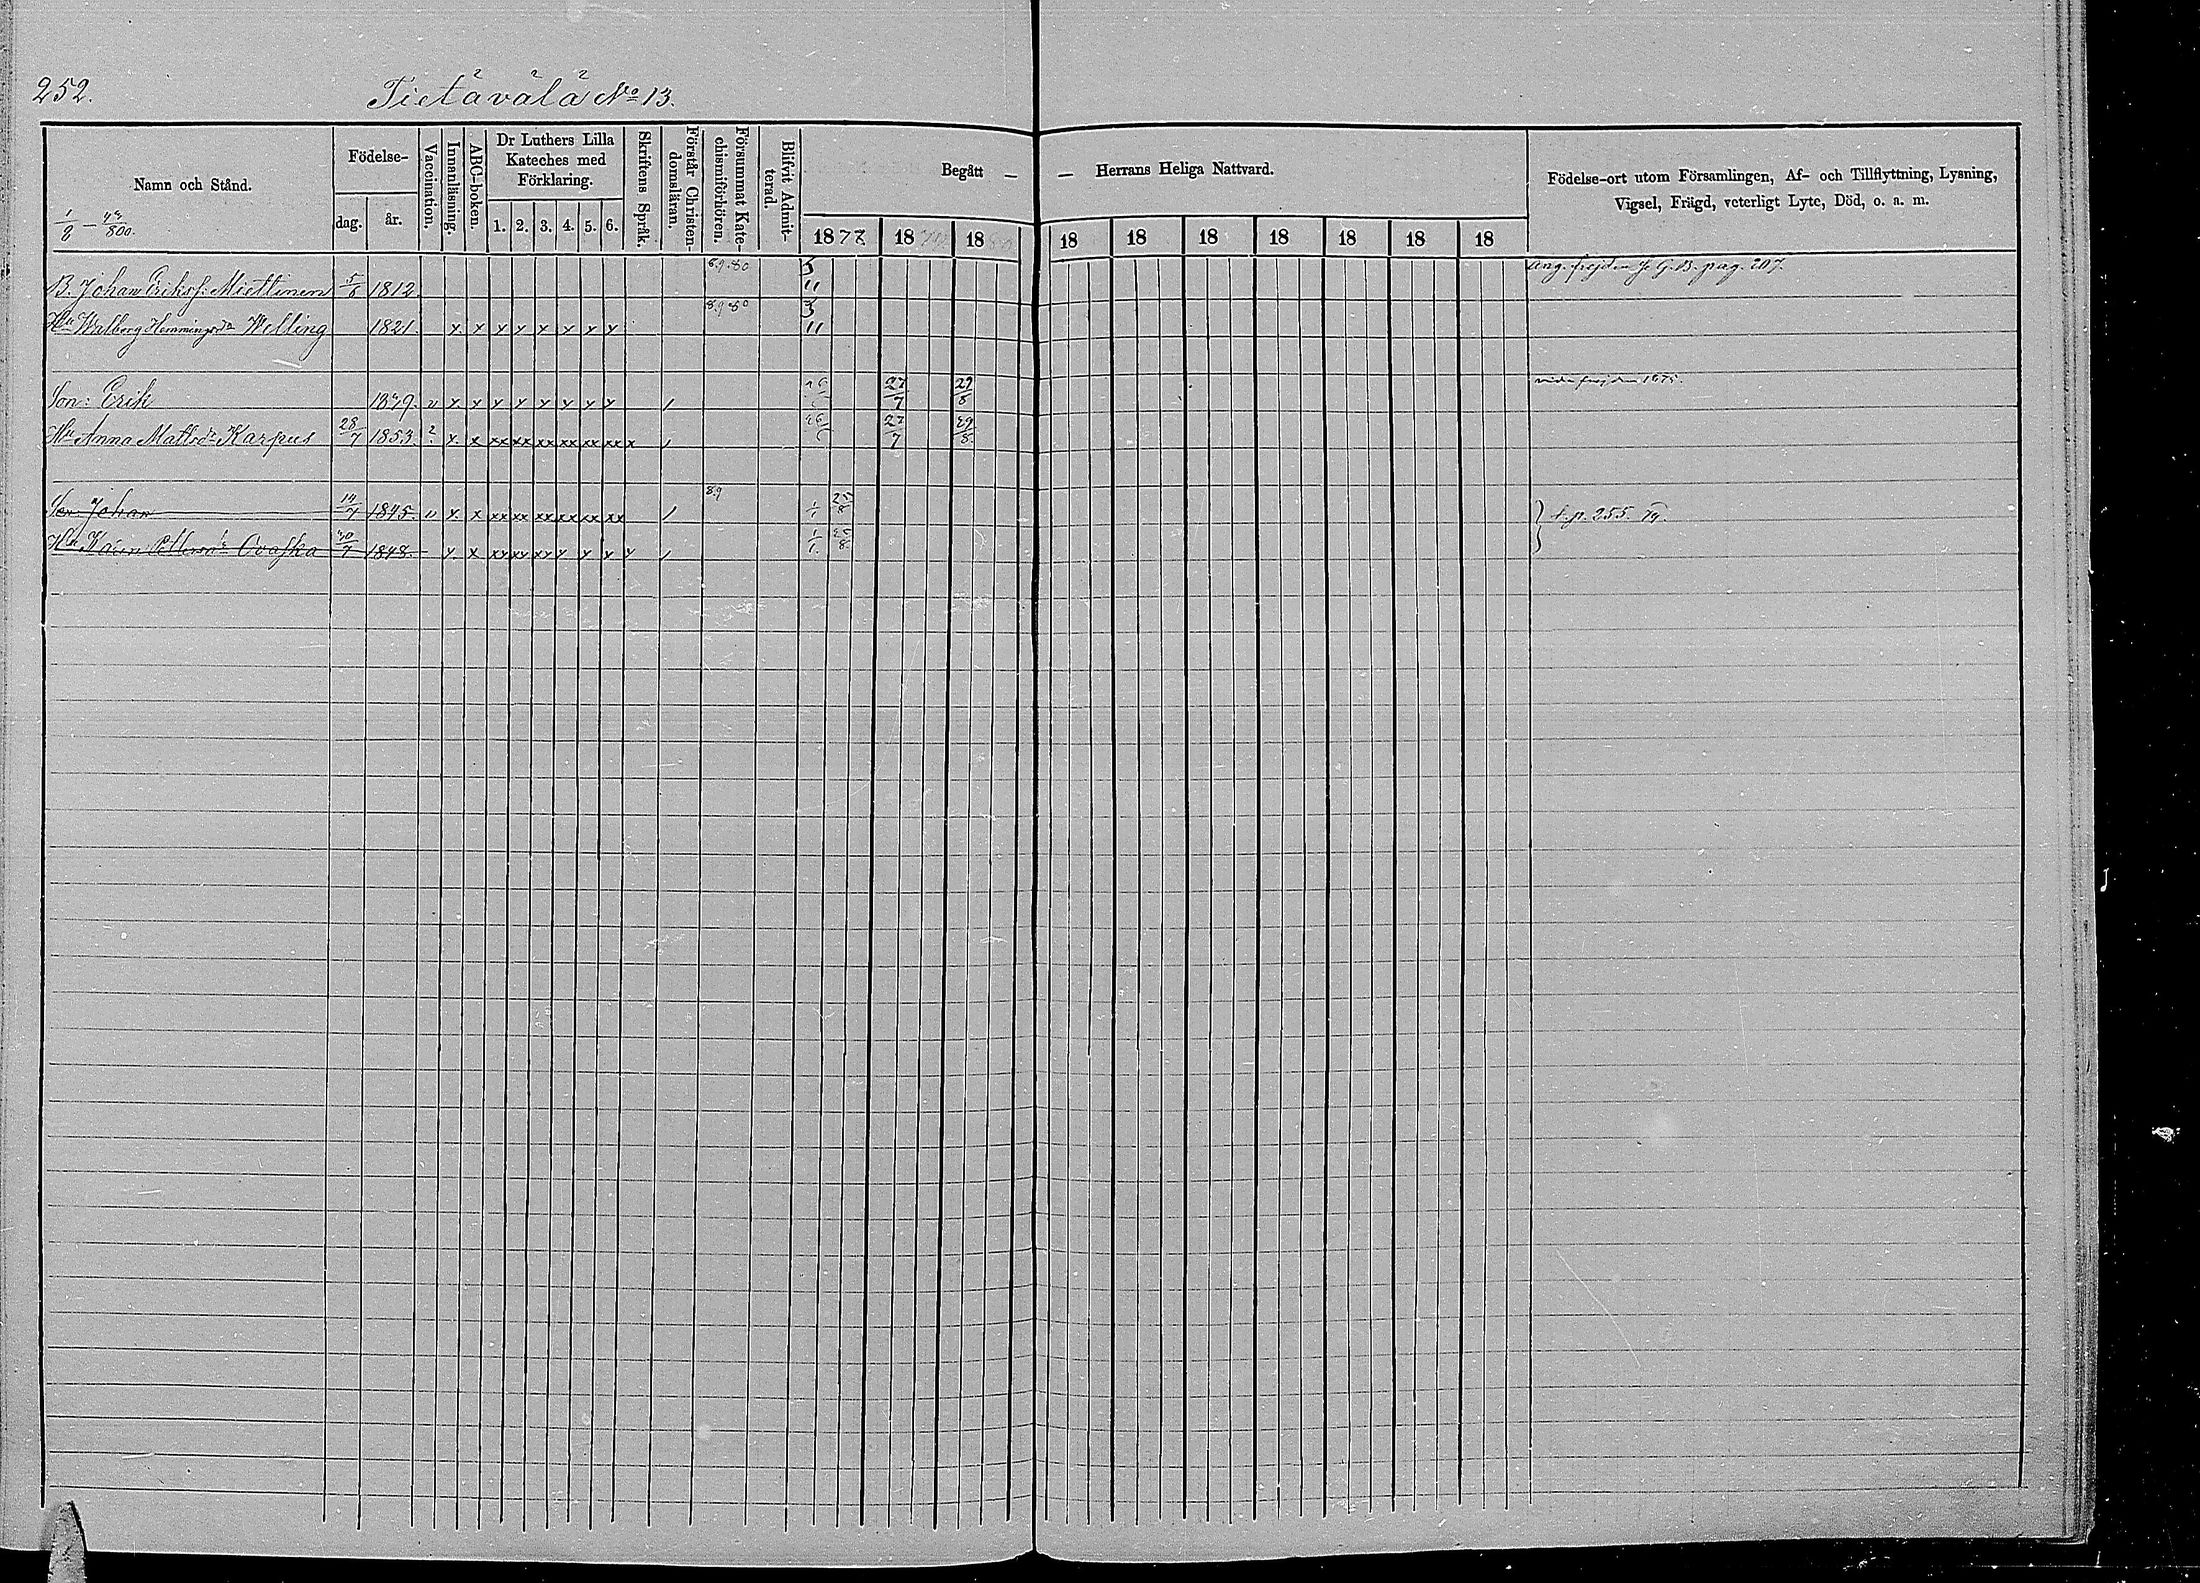 252. Tietävälä No 13.
Namn och Stånd.
Födelse-
dag. år.
Vaccination.
Innanläsning.
ABC-boken.
Dr Luthers Lilla
Kateches med
Förklaring.
1. 2. 3. 4. 5. 6.
Skriftens Språk.
Förstår Christen-
domsläran.
Försummat Kate-
chismiförhören.
Blifvit Admit-
terad.
Begått — — Herrans Heliga Nattvard.
1877 18 18 18 18 18 18 18 18 18
Födelse-ort utom Församlingen, Af- och Tillflyttning, Lysning,
Vigsel, Frägd, veterligt Lyte, Död, o. a. m.
B. Johan Erikss. Miettinen 5/8 1812 8.9.80 3/11 Ang. frejden se G. B. pag. 207.
Hu Walborg Hemmingsdr Welling 1821 x x x x x x x x 8.9.80 3/11
Son: Erik 1849. x x x x x x x x 27/7 29/8
Hu Anna Mattsdr Karpus 28/7 1853. x x xx xx xx xx xx xx x 27/7 29/8
Son Johan 14/7 1845. x x xx xx xx xx xx xx 8.9 1/1 25/8 t. p. 255.
Hu Karin Pettersdr Ovaska 30/7 1848. x x xx xx xx x x x x 1/1 25/8